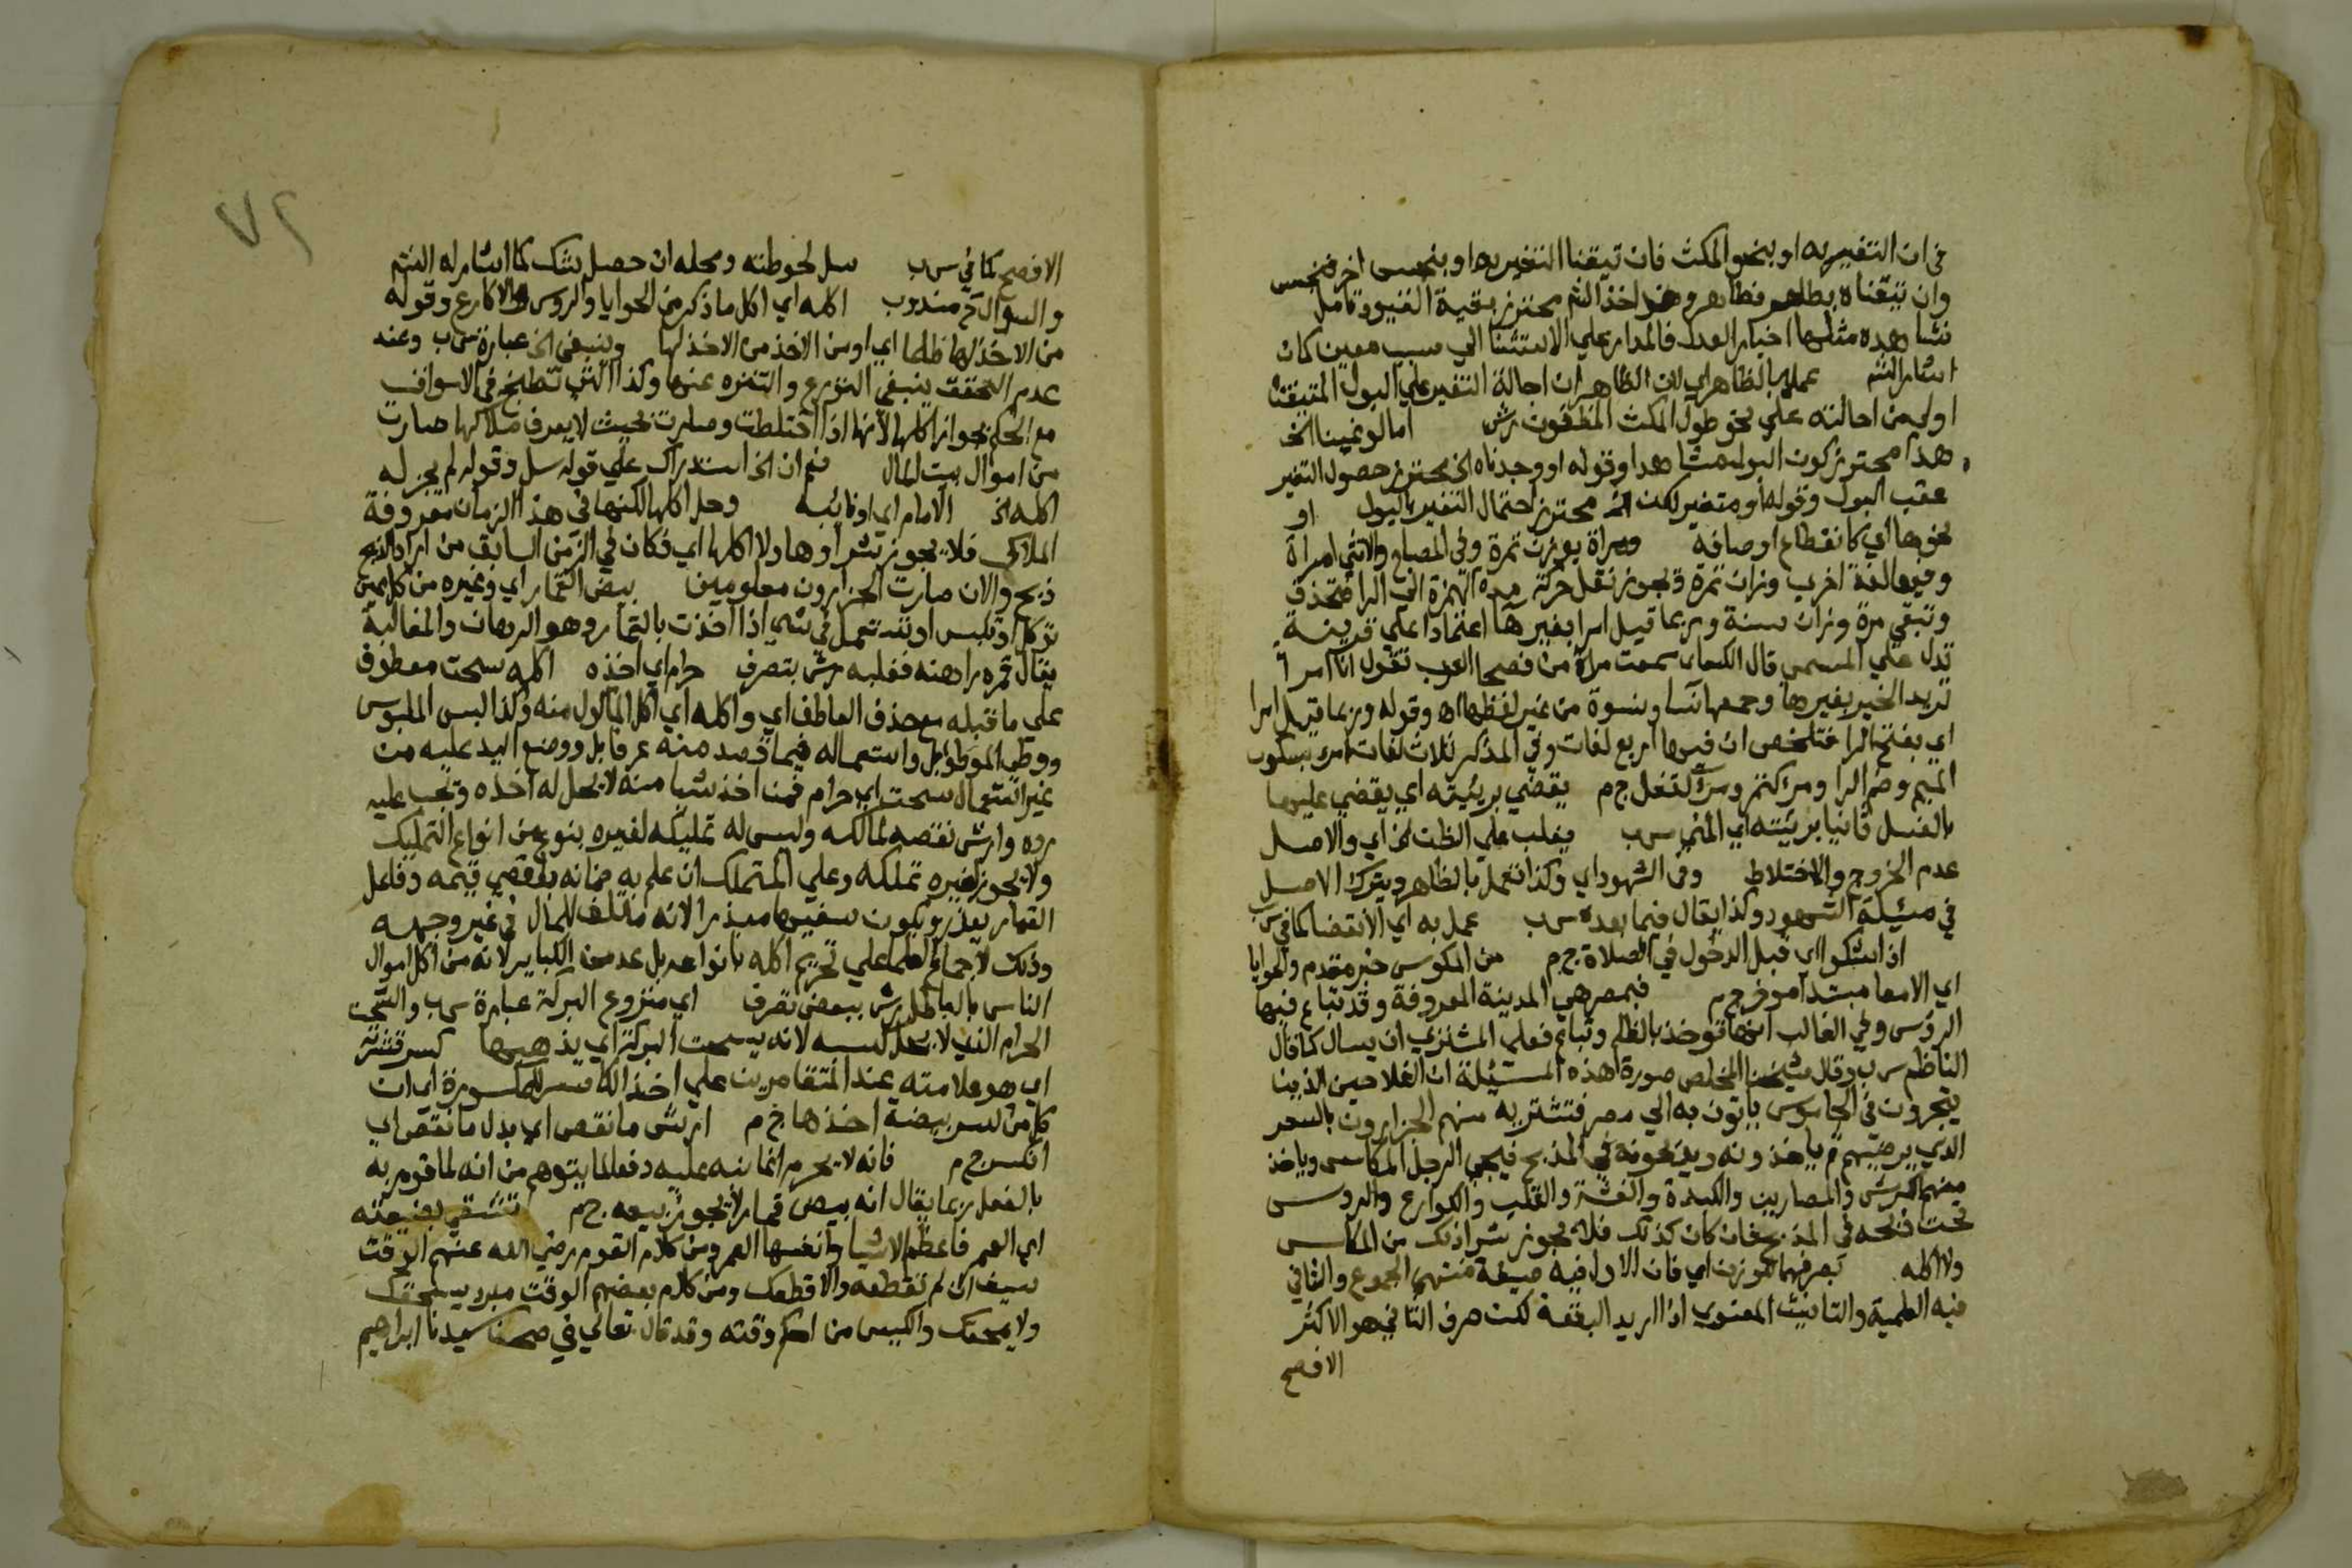 في ان التغير به او بنحو المكث فان تيقنا التغير بها او بنجس اخر فنجس
وان تيقناه بطاهر فطاهر وهذا اخذ الشم محترز بقية القيود تامل
نشاهده مثلها اخبار العدل فالمدار علي الاستثنا الي سبب معين كمان
اشار الشم عملا بالظاهر اي لان الظاهر ان احالة التغير علي البول المتيقنة
اولي من احالته علي نحو طول المكث المظنون رش اما لو غبنا الخ
هذا محترز كون البول مشاهدا وقوله او وجدناه الخ محترز حصول التغير
عقب البول وقوله او متغير لكن الخ محترز احتمال التغير بالبول او
نحوها اي كانقطاع اوصافه ومراة بوزن تمرة وفي المصباح والانثي امراة
وفيها لغة اخري وزان تمرة ويجوز نقل حركة هذه الهمزة الي الرا فتحذف
وتبقي مرة وزان سنة وربما قيل امرا بغير ها اعتمادا علي قرينة
تدل علي المسمي قال الكساي سمعت مراة من فصحا العرب تقول انا امرا
تريد الخير بغير ها وجمعها نسا ونسوة من غير لفظها اه وقوله وربما قيل امرا
اي بفتح الرا فتلخص ان فيها اربع لغات وفي المذكر ثلاث لغات امرء بسكون
الميم وضم الرا ومرء كنتر ومرء كقفل ج م يقضي برئيته اي يقضي عليها
بالغسل ثانيا برئيته اي المني س ب يغلب علي الظن الخ اي والاصل
عدم الخروج والاختلاط وفي الشهود اي وكذا نعمل بالظاهر ويترك الاصل
في مسئلة الشهود وكذا يقال فيما بعده س ب عمل به اي الانقضا كما في س ب
ان اشكوا اي قبل الدخول في الصلاة ج م من المكوس خبر مقدم والحوايا
اي الامعا مبتدا موخر ج م فبمصر هي المدينة المعروفة وقد تباع فيها
الروس وفي الغالب انها توخذ بالظلم وتباع فعلي المشتري ان يسال كما قال
الناظم س ب وقال شيخنا الملخص صورة هذه المسئلة ان الفلاحين الذين
يتجرون في الجاموس ياتون به الي مصر فتشتريه منهم الجزارون بالسعر
الذي يرضيهم ثم ياخذونه ويذبحونه في المذبح فيجي الرجل المكاس وياخذ
منهم الكرش والمصارين والكبدة والفشة والقلب والكوارع والروس
تحت ذبحه في المذبح فان كان كذلك فلا يجوز شرا ذلك من المكاس
ولا اكله تصرفهما للوزن اي فان الاول فيه صيغة منتهي الجموع والثاني
فيه العلمية والتانيث المعنوي اذا اريد البقعة لكن صرف الثاني هو الاكثر
الافصح
٧٢
الافصح كما في س ب سل لحوطته ومحله ان حصل شك كما اشار له الشم
والسوال ثم مندوب اكله اي اكل ما ذكر من الحوايا والروس والاكارع وقوله
من الاخذ لها ظلما اي او من الاخذ من الاخذ لها وينبغي الخ عبارة س ب وعند
عدم التحقق ينبغي التورع والتنزه عنها وكذا التي تطبخ في الاسواق
مع الحكم بجواز اكلها لانها اذا اختلطت وصارت بحيث لا يعرف ملاكها صارت
من اموال بيت المال نعم ان الخ استدراك علي قوله سل وقوله لم يجز له
اكله الخ الامام اي او نائبه وحل اكلها لكنها في هذا الزمان معروفة
الملاك فلا يجوز شراوها ولا اكلها اي فكان في الزمن السابق من اراد الذبح
ذبح والان صارت الجزارون معلومين بيض القمار اي وغيره من كل عين
توكل او تلبس او تستعمل في شي اذا اخذت بالقمار وهو الرهان والمغالبة
يقال قمره راهنه فغلبه رش بتصرف حرام اي اخذه اكله سحت معطوف
علي ما قبله مع حذف العاطف اي واكله اي اكل الماكول منه وكذا لبس الملبوس
ووطي الموطو بل واستعماله فيما قصد منه عرفا بل ووضع اليد عليه من
غير استعمال سحت اي حرام فمن اخذ شيا منه لا يحل له اخذه وتجب عليه
رده وارش نقصه لمالكه وليس له تمليكه لغيره بنوع من انواع التمليك
ولا يجوز لغيره تملكه وعلي المتملك ان علم به ضمانه باقصي قيمه وفاعل
القمار يعذر ويكون سفيها مبذرا لانه متلف للمال في غير وجهه
وذلك لاجماع العلما علي تحريم اكله بانواعه بل عد من الكباير لانه من اكل اموال
الناس بالباطل رش ببعض تصرف اي منزوع البركة عبارة س ب والسحت
الحرام الذي لا يحل كسبه لانه يسحت البركة اي يذهبها كسر قشرته
اي هو علامته عند المتقامرين علي اخذ الكاسر للمكسورة اي ان
كل من كسر بيضة اخذها خ م ارش ما نقص اي بدل ما نقص اي
انكسر ج م فانه لا يحرم انما نبه عليه دفعا لما يتوهم من انه لما قومر به
بالفعل ربما يقال انه بيض قمار لا يجوز بيعه ج م تشقي بضيعته
اي العمر فاعظم الاشيا وانفسها العمر ومن كلام القوم رضي الله عنهم الوقت
سيف ان لم تقطعه والا قطعك ومن كلام بعضهم الوقت مبرد يسحقك
ولا يمحقك والكيس من احكم وقته وقد قال تعالي في صحف سيدنا ابراهيم